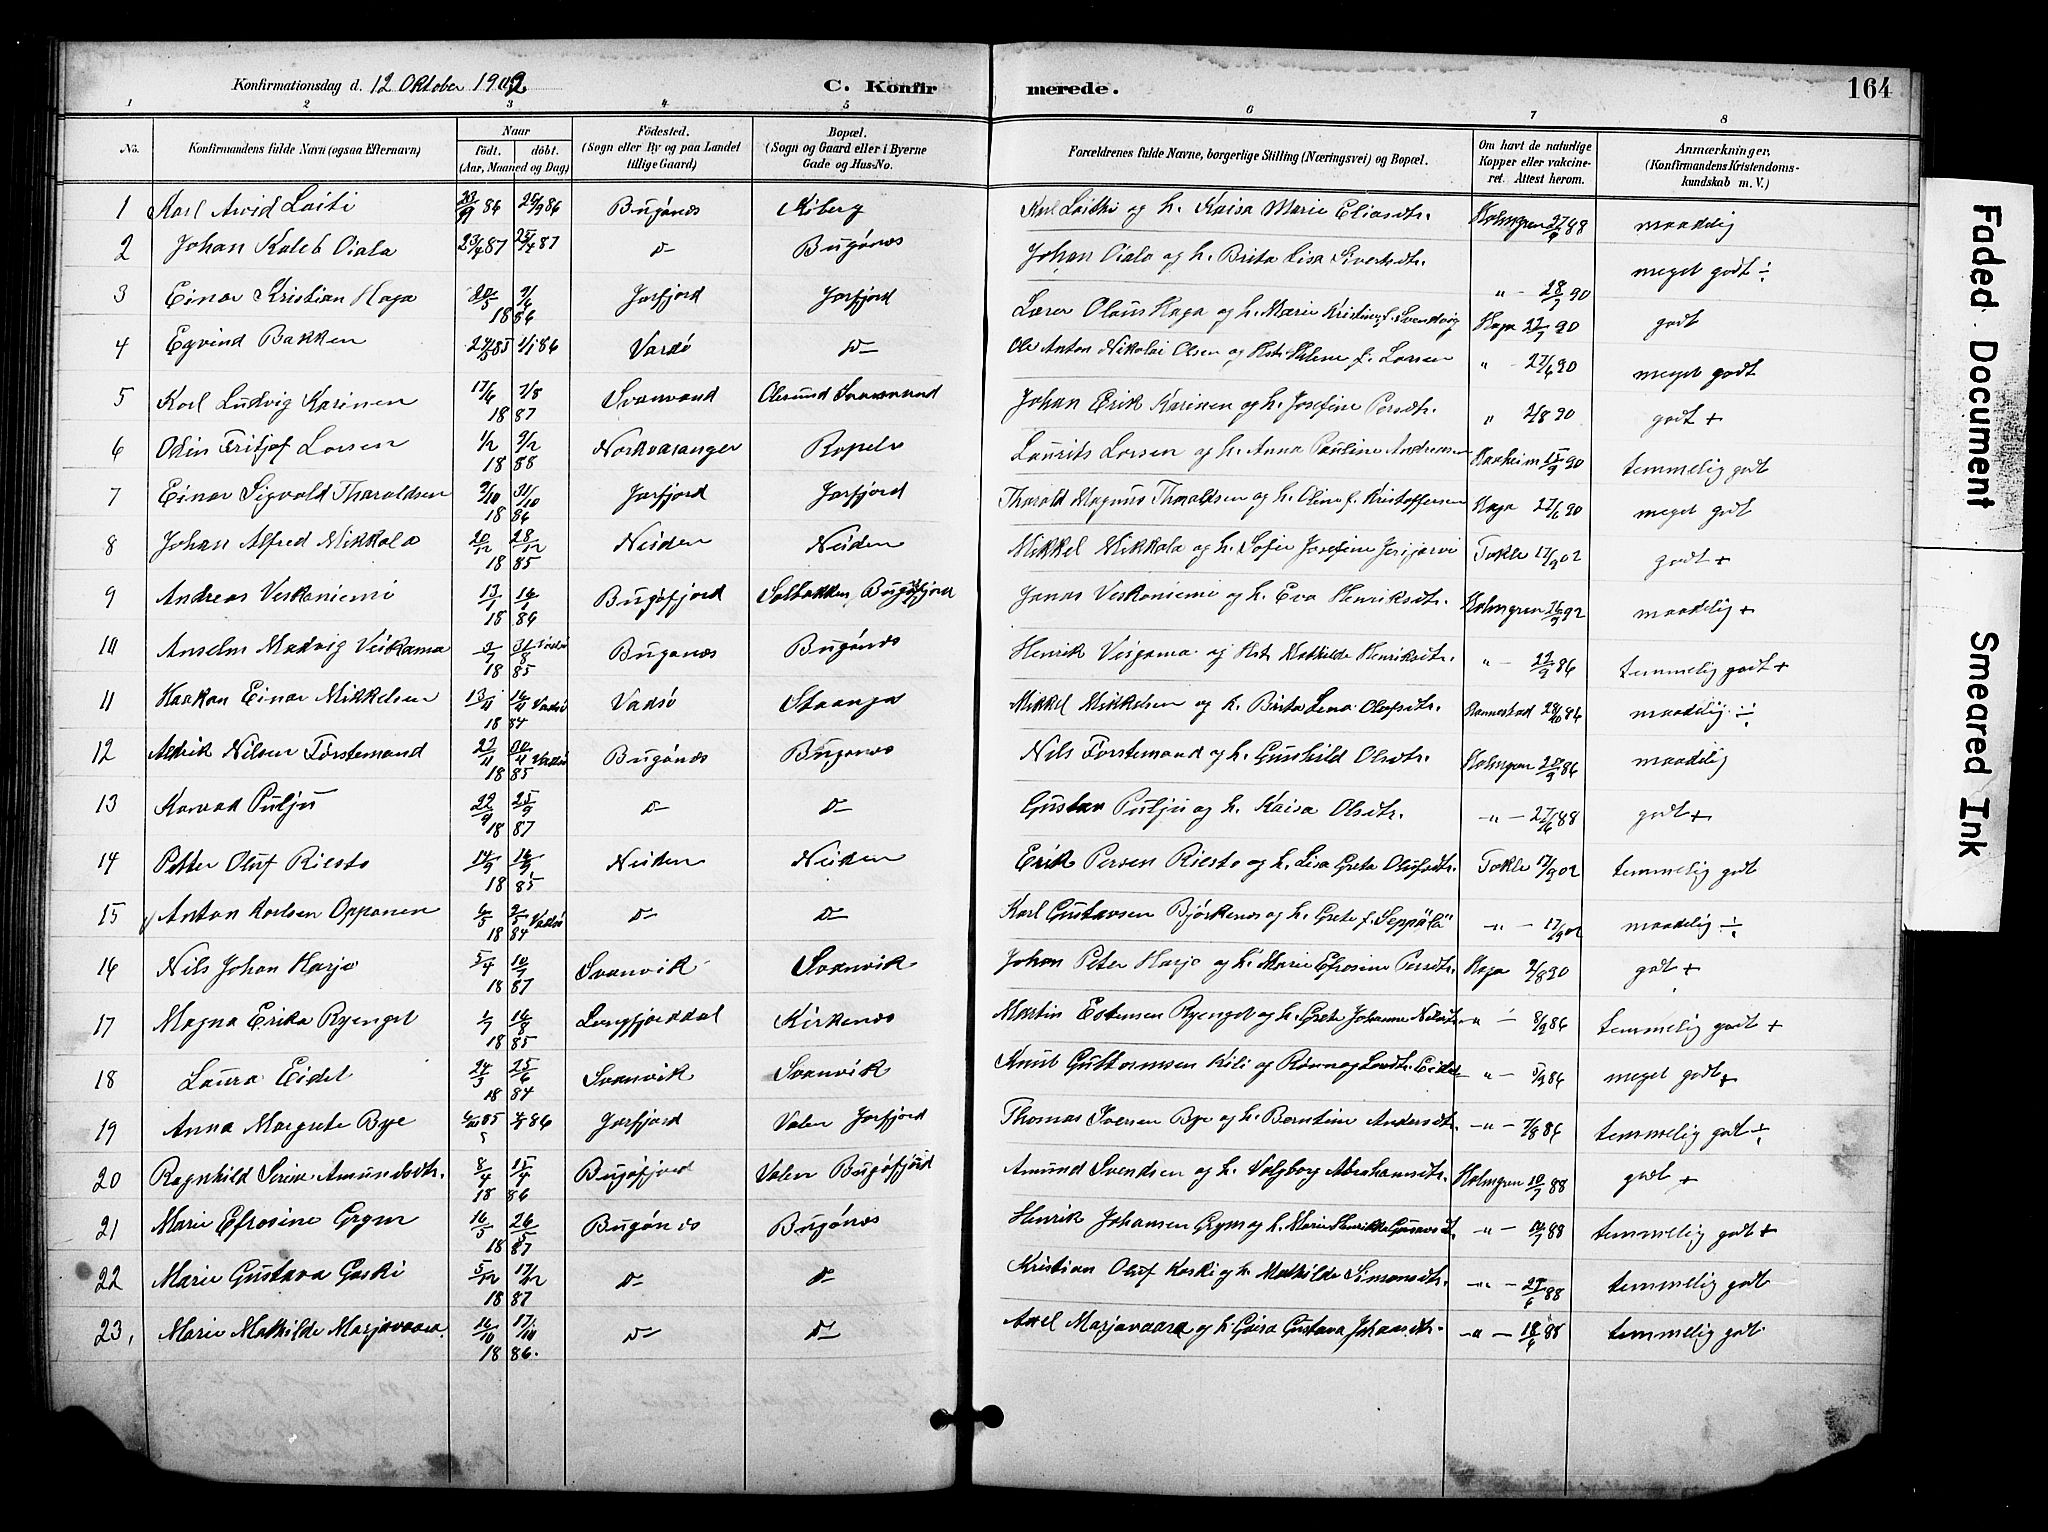 Konfirmationsdag d. 12 Oktober 1902 C. Konfirmerede. 164
1 2 3 4 5 6 7 8
No. Konfirmandens fulde Navn (ogsaa Efternavn) Naar født. døbt. (Aar, Maaned og Dag) Fødested. (Sogn eller By og paa Landet tillige Gaard) Bopæl. (Sogn og Gaard eller i Byerne Gade og Hus-No. Forældrenes fulde Navne, borgerlige Stilling (Næringsvei) og Bopæl. Om havt de naturlige Kopper eller vakcineret. Attest herom. Anmærkninger, (Konfirmandens Kristendomskundskab m. V.)
1 Karl Arvid Laiti 86 26/9 86 Bugønes Kiberg Karl Laithi og h. Kaisa Marie Eliasdtr. Holmgren 27/9 88 maadelig
2 Johan Kaleb Oiala 23/4 87 25/4 87 d- Bugønes Johan Oiala og h. Brita Lisa Sivertsdtr. " - 28/7 90 meget godt ÷
3 Einar Kristian Haga 20/5 9/6 1886 Jarfjord Jarfjord Lærer Olaus Haga og h. Marie Kristine f. Svendvig Haga 27/7 90 godt
4 Eyvind Bakken 24/5 85 1/1 86 Vardø d- Ole Anton Nikolai Olsen og Hst. Helene f. Larsen " 27/6 90 meget godt
5 Karl Ludvig Karinen 17/6 7/8 1887 Svanvand Svanvand Johan Erik Karinen og h. Josefine Persdtr. " 2/8 90 godt +
6 Odin Fritjof Larsen 1/2 9/2 1888 Norkvaranger Ropelv Laurits Larsen og h. Anna Pauline Andreasen 15/9 90 temmelig godt
7 Einar Sigvald Tharaldsen 9/10 31/10 1886 Jarfjord Jarfjord Tharald Magnus Tharaldsen og h. Oline f. Kristoffersen Haga 27/6 90 meget godt
8 Johan Alfred Mikkola 20/12 28/12 1885 Neiden Neiden Mikkel Mikkola og h. Sofie Josefine Jerijarvi Tokle 17/9 02 godt +
9 Andreas Veskoniemi 13/1 16/1 1886 Bugøfjord Solbakken, Bugøfjord Jonas Veskoniemi og h. Eva Henriksdtr. Holmgren 26/9 92 maadelig +
10 Anselm Madvig Veiskama 3/7 31/8 Vadsø 1885 Bugønes Bugønes Henrik Veisgama og Hst. Mathilde Henriksdtr. " - 22/9 86 temmelig godt +
11 Haakon Einar Mikkelsen 13/4 16/4 Vadsø 1884 Vadsø Staanga Mikkel Mikkelsen og h. Birita Lena Olafsdtr. Ronnestad 28/10 86 maadelig ÷
12 Nilsen Førstemand 22/4 30/4 Vadsø 1885 Bugønes Bugønes Nils Førstemand og h. Gunhild Olsdtr. Holmgren 20/9 86 maadelig
13 Konrad Puljú 22/9 25/9 1887 d- d- Gustav Puljú og h. Kaisa Olsdtr. -"- 27/6 88 godt +
14 Petter Oluf Riesto 14/9 16/9 1885 Neiden Neiden Erik Persen Riesto og h. Lisa Greta Olufsdtr. Tokle 17/9 02 temmelig godt
15 Anton Karlsen Opponen 6/5 9/5 Vadsø 1884 d- d- Karl Gustavsen Björkenes og h. Grete f. Seppälä -"- 17/9 02 maadelig ÷
16 Nils Johan Harjo 5/4 10/7 1887 Svanvik Svanvik Johan Peter Harjo og h. Marie Efrosine Persdtr. Haga 2/8 90 godt +
17 Magna Erika Ryenget 1/7 16/8 1885 Langfjorddal Kirkenes Martin Estensen Ryenget og h. Grete Johanne Nilsdtr. " - 8/9 86 temmelig godt +
18 Laura Eidet 24/3 25/6 1884 Svanvik Svanvik Knut Guttormsen Kili og Rønnog Larsdtr. Eidet " - 5/9 86 meget godt +
19 Anna Margrete Bye 85 86 Jarfjord Valen Jarfjord Thomas Iversen Bye og h. Berntine Andersdtr. -"- 7/8 86 temmelig godt ÷
20 Ragnhild Serine Amundsdtr. 8/4 15/4 1886 Bugøfjord Valen Bugøfjord Amund Svendsen og h. Valgborg Abrahamsdtr. Holmgren 10/7 88 godt +
21 Marie Efrosine Grym 16/5 26/5 1887 Bugønes Bugønes Henrik Johansen Grym og h. Marie Henrikke Gustavsdt. " - 10/7 88 temmelig godt +
22 Marie Gustava Gaski 5/12 17/12 1887 d- d- Kristian Oluf Koski og h. Mathilde Simonsdtr. -"- 27/6 88 temmelig godt
23, Marie Mathilde Marjavaara 16/10 17/10 1886. d- d- Axel Marjavaara og h. Gaisa Gustava Johansdtr. -"- 18/6 88 temmelig godt
Faded Document
Smeared Ink